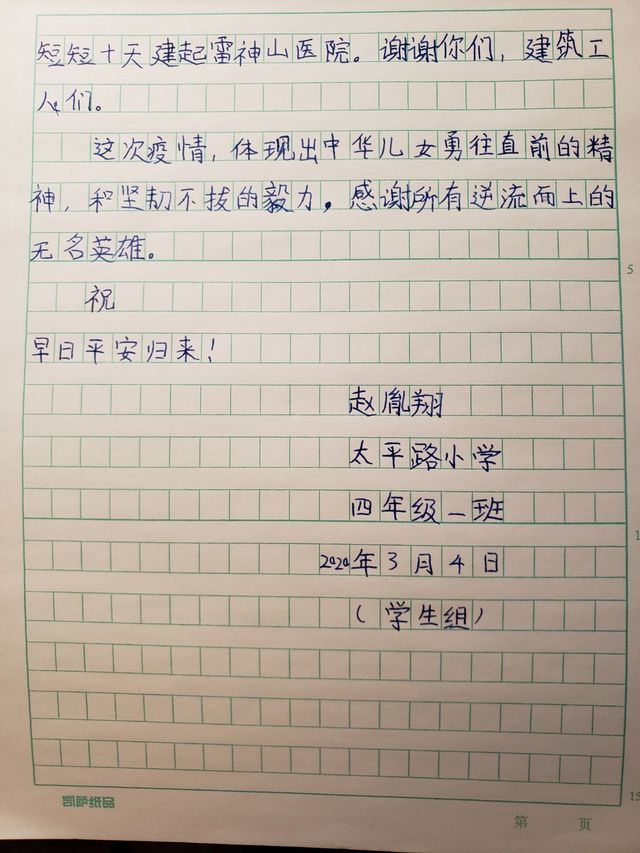 短短十天建起雷神山医院。谢谢你们，建筑工
人们。
这次疫情，体现出中华儿女勇往直前的精
神，和坚韧不拔的毅力，感谢所有逆流而上的
无名英雄。
祝
早日平安归来！
赵胤翔
太平路小学
四年级一班
2020年3月4日
（学生组）
5
1
15
凯萌纸品
第 页